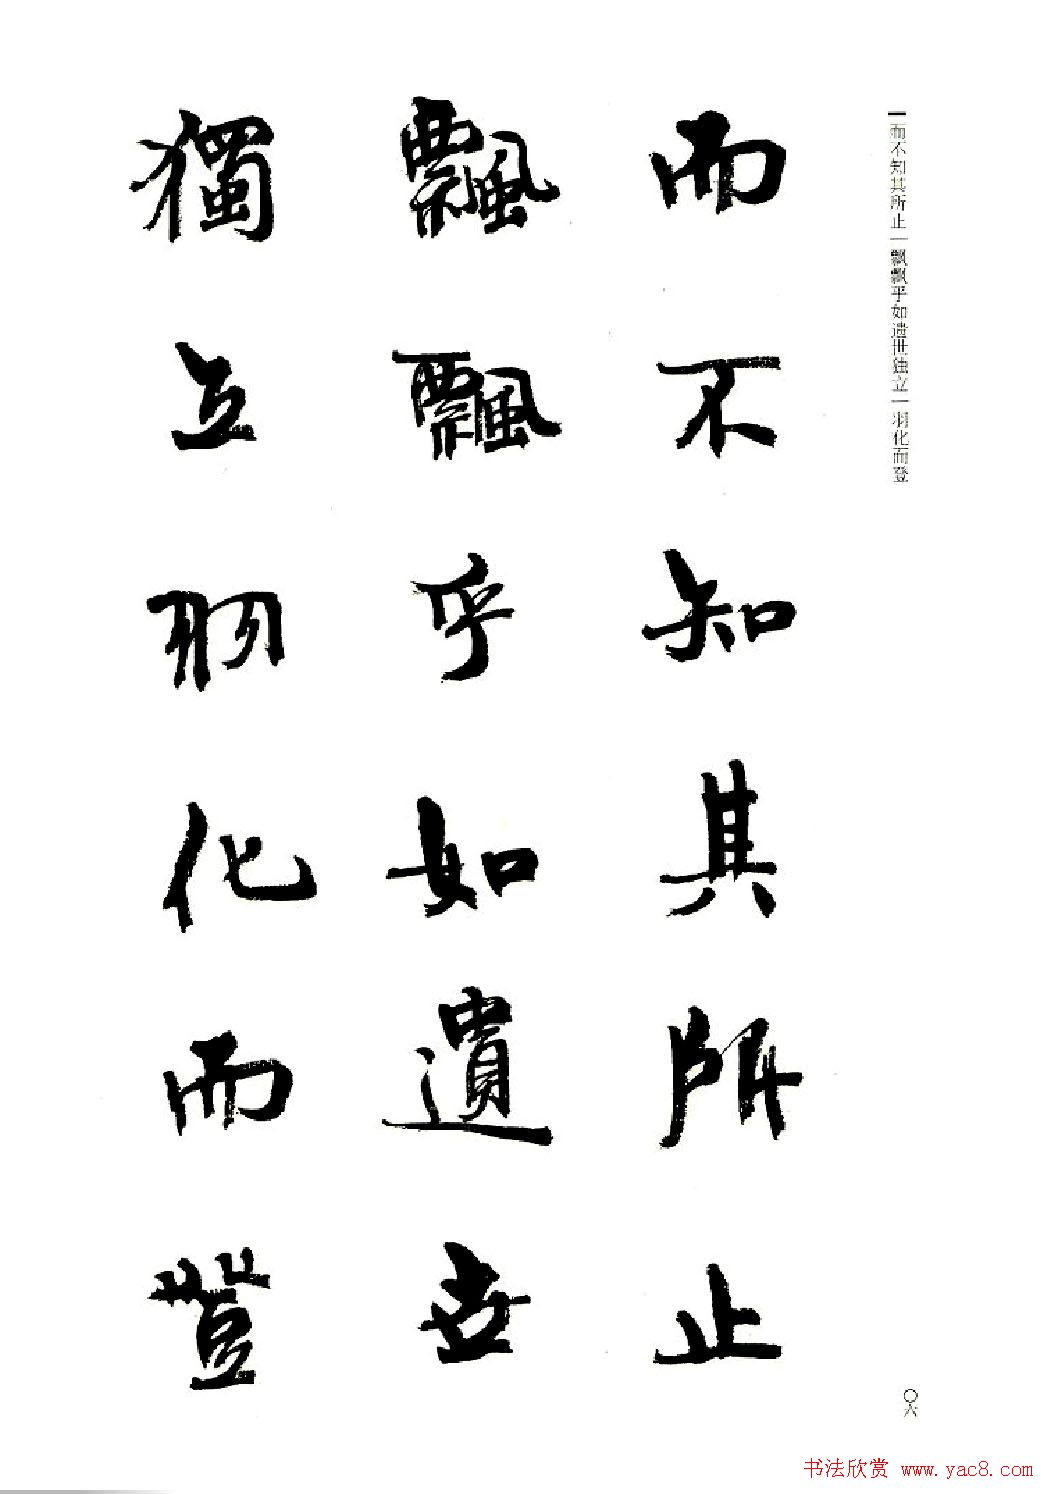 而不知其所止｜飘飘乎如遗世独立｜羽化而登
而不知其所止
飄飄乎如遺世
獨立羽化而登
〇六
书法欣赏 www.yac8.com